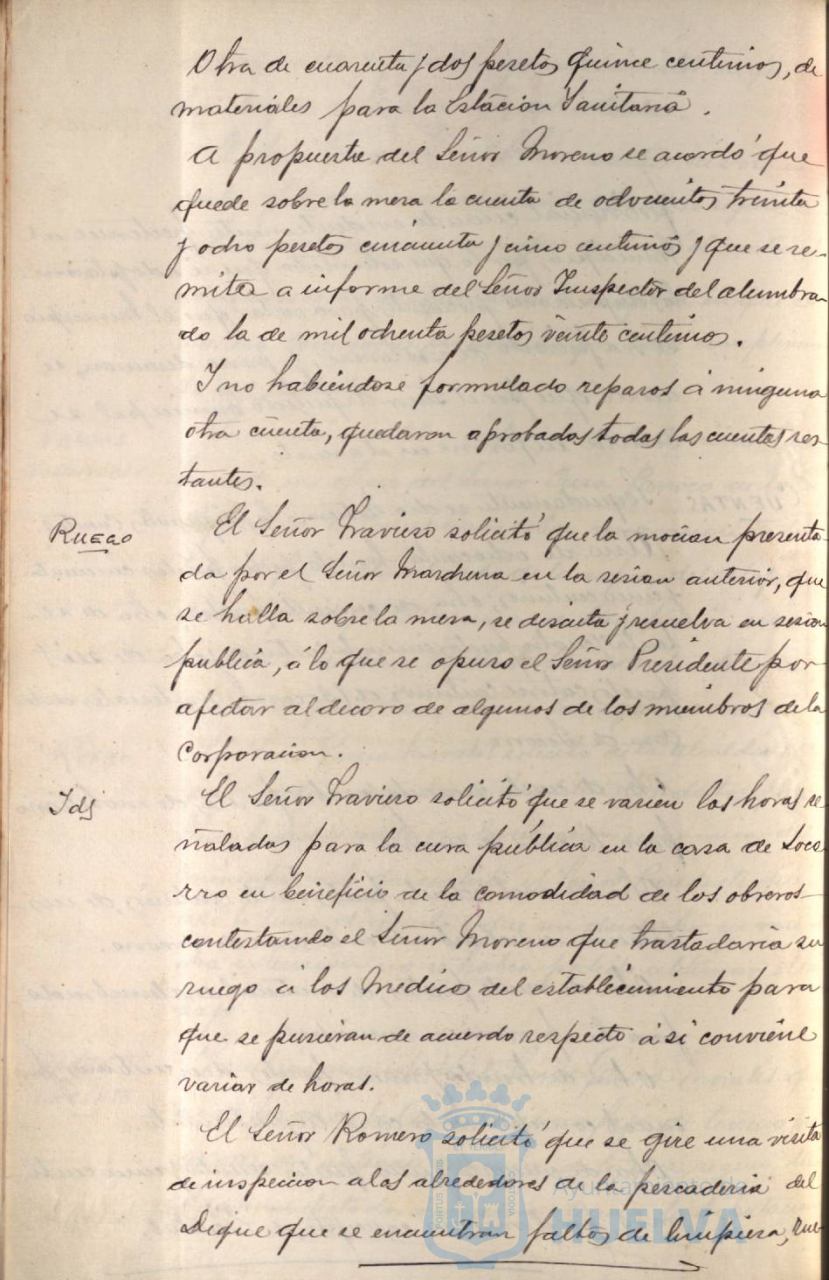 Otra de cuarenta y dos pesetas quince centimos, de
materiales para la Estacion Sanitaria.
A propuesta del Señor Moreno se acordó que
quede sobre la mesa la cuenta de ochocientos treinta
y ocho pesetas cincuenta y cinco centimos y que se re-
mita a informe del Señor Inspector del alumbra-
do la de mil ochenta pesetas veinte centimos.
Y no habiéndose formulado reparos á ninguna
otra cuenta, quedaron aprobadas todas las cuentas res-
tantes.
Ruego
El Señor Travieso solicitó que la mocion presenta-
da por el Señor Marchena en la sesion anterior, que
se halla sobre la mesa, se discuta y resuelva en sesion
publica, á lo que se opuso el Señor Presidente por
afectar al decoro de algunos de los miembros de la
Corporacion.
Id.
El Señor Travieso solicitó que se varien las horas se-
ñaladas para la cura pública en la casa de Soco-
rro en beneficio de la comodidad de los obreros
contestando el Señor Moreno que trasladaria su
ruego á los Medicos del establecimiento para
que se pusieran de acuerdo respecto á si conviene
variar de horas.
El Señor Romero solicitó que se gire una visita
de inspeccion a los alrededores de la pescaderia del
Dique que se encuentran faltos de limpieza,
Ayuntamiento de
HUELVA